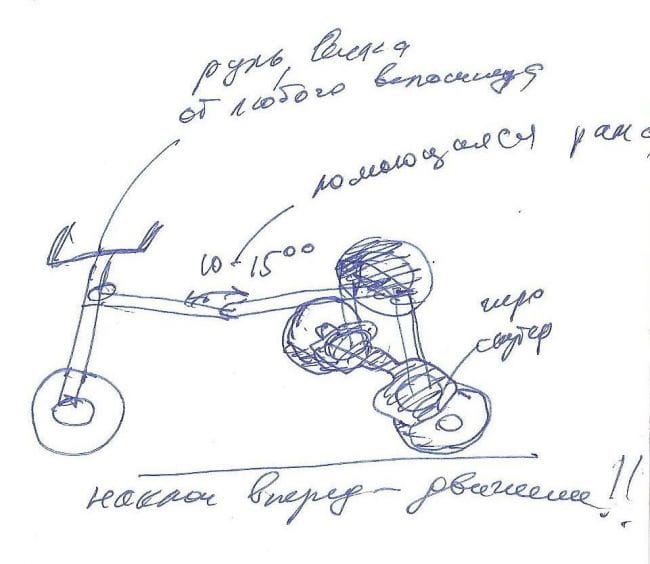 руль, вилка
от любого велосипеда
ломающаяся рама
10-15⁰⁰
гиро
скутер
наклон вперед - движение!!